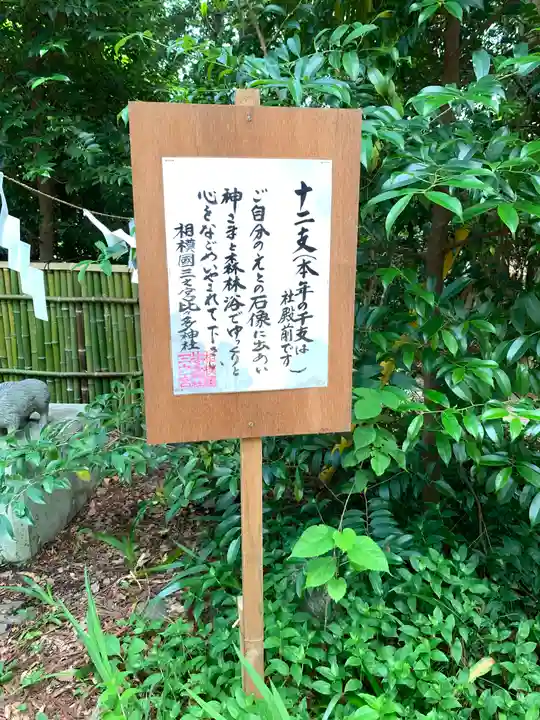 十二支(本年の干支は
社殿前です)
ご自分のえとの石像に出あい
神さまと森林浴でゆっくりと
心をなごめいやされて下さい
相模國三之宮比々多神社